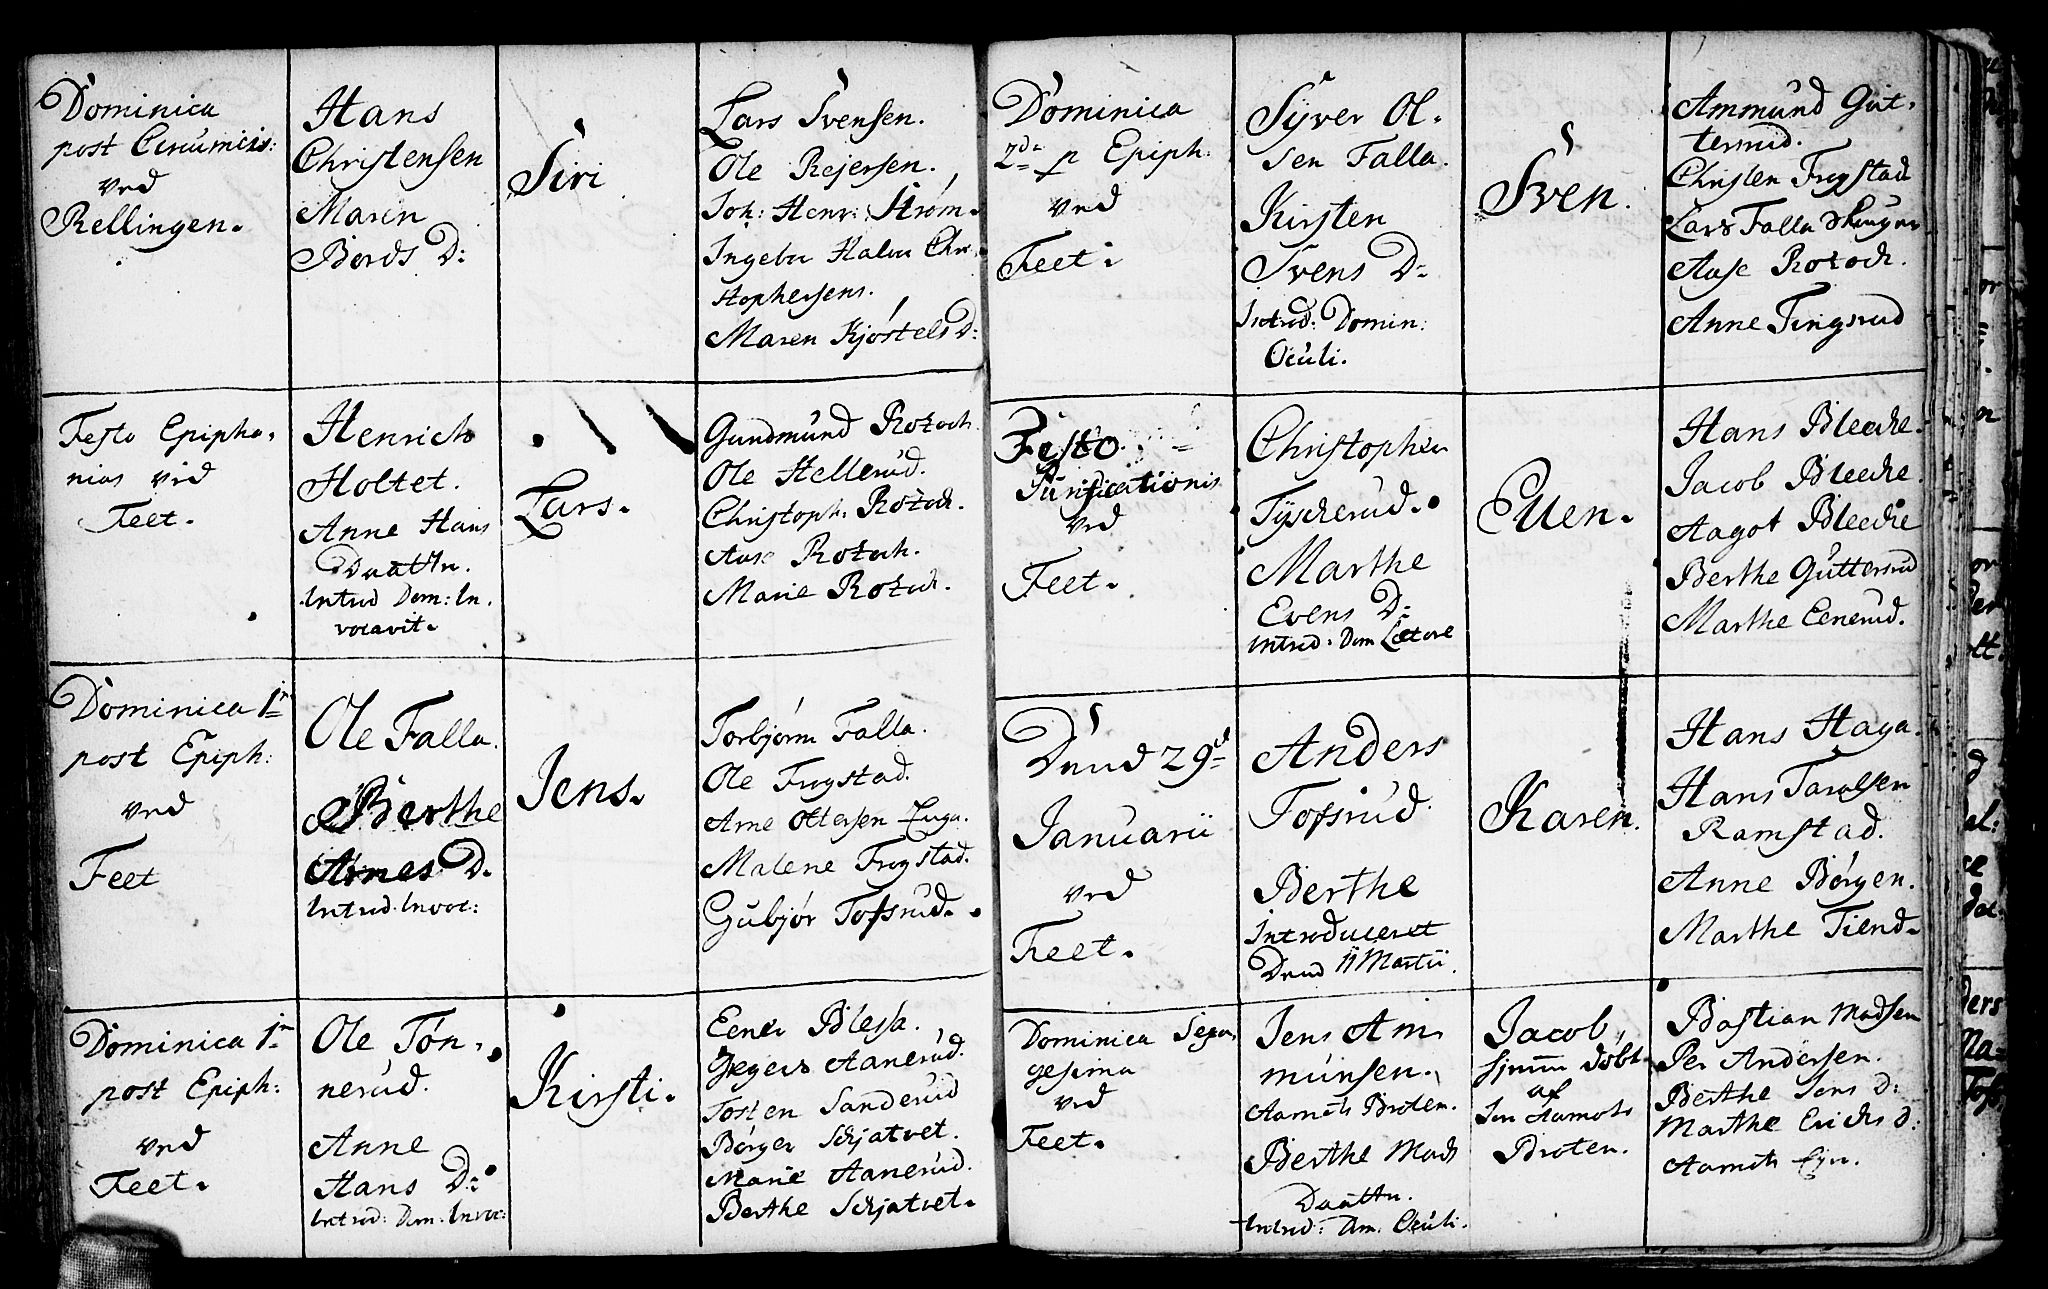 Dominica
post Circumcis:
ved
Rellingen.
Hans
Christensen
Maren
Bords D:
Siri
Lars Svensen.
Ole Rejersen.
Joh: Henr: Strøm.
Ingebor Halvor Chri-
stophersens.
Maren Kjøstels D:
Festo Epipha-
nias ved
Feet.
Henrich
Holtet.
Anne Hans
Daattr.
Introd Dom: In-
vocavit.
Lars.
Gundmund Rotoch.
Ole Hellerud.
Christoph. Rotoch.
Aase Rotoch.
Marie Rotoch.
Dominica 1ma
post Epiph:
ved
Feet
Ole Falla.
Berthe
Arnes D.
Introd. Invoc:
Jens.
Torbjørn Falla.
Ole Frogstad.
Arne Ottersen
Malene Frogstad.
Gubjør Tofsrud.
Dominica 1ma
post Epiph:
ved
Feet.
Ole Tøn-
nerud.
Anne
Hans D:
Introd: Dom. Invoc:
Kirsti.
Eener Blessa.
Gregers Aanerud.
Tosten Sanderud
Børger Schjatvet.
Marie Aanerud.
Berthe Schjatvet.
Dominica
2da p Epiph:
ved
Feet.
Syver Ol-
sen Falla.
Kirsten
Svens D:
Introd: Domin:
Oculi.
Sven.
Ammund Gut-
tersrud.
Christen Frogstad
Lars Falla
Aase Rotoch.
Anne Tingsrud
Festo
Purificationis
ved
Feet.
Christopher
Tyscherud.
Marthe
Evens D:
Introd: Dom Lætare
Even.
Hans Bleche.
Jacob Bleche.
Aagot Bleche
Berthe Guttersrud
Marthe Eenerud.
Dend 29de
Januarii
ved
Feet.
Anders
Tofsrud.
Berthe
Introduceret
Dend 11 Martii.
Karen.
Hans Haga.
Hans Tarolsen
Ramstad.
Anne Børgen.
Marthe Tiend.
Dominica Sexa-
gesima
ved
Feet.
Jens Am-
munsen.
Aamots Broten.
Berthe Mads
Daattr.
Introd: Dm. Oculi.
Jacob,
hjemme døbt
af
Jon Aamots
Broten.
Bastian Madsen
Per Andersen.
Berthe Jens D:
Marthe Erichs d:
Aamots